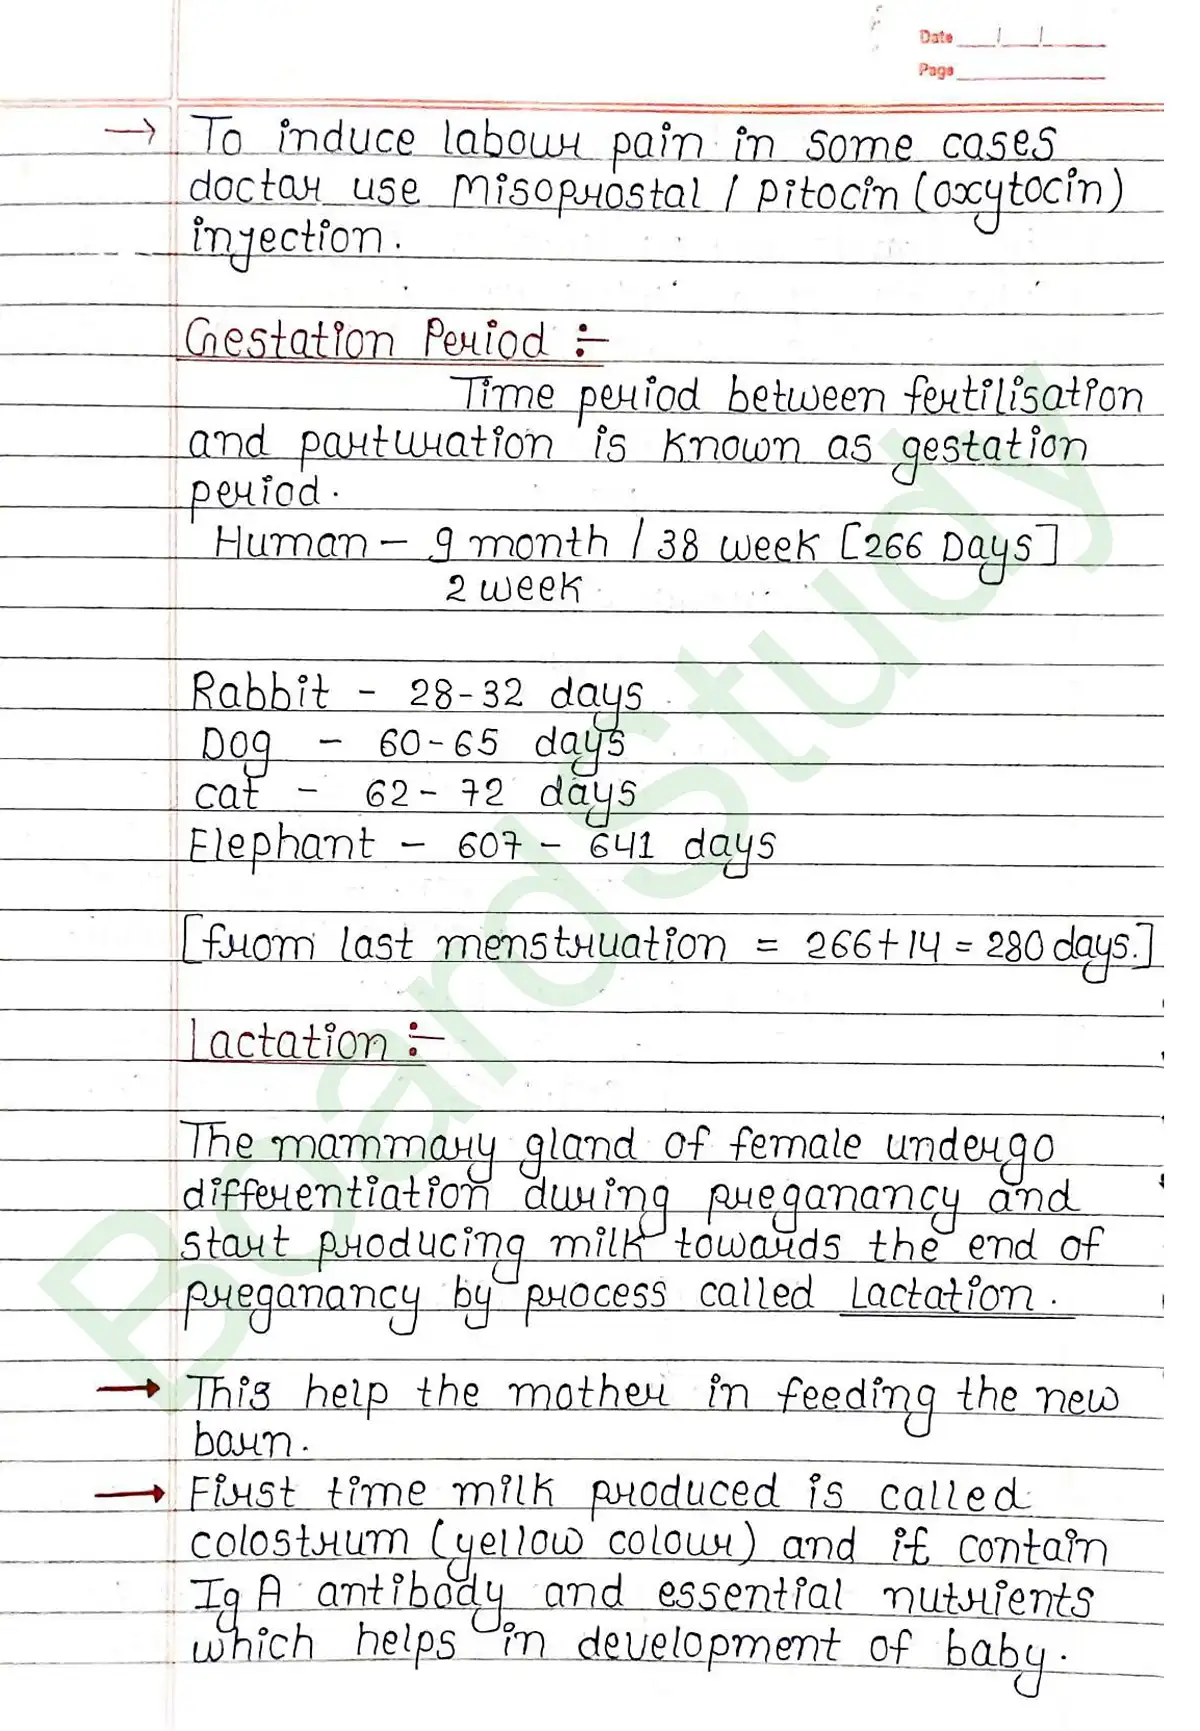 Date / /
Page
→ To induce labour pain in some cases
doctor use Misoprostal / Pitocin (oxytocin)
injection.
Gestation Period :-
Time period between fertilisation
and parturation is known as gestation
period.
Human - 9 month / 38 week [266 Days]
2 week
Rabbit - 28-32 days
Dog - 60-65 days
cat - 62-72 days
Elephant - 607-641 days
[from last menstruation = 266+14 = 280 days.]
Lactation :-
The mammary gland of female undergo
differentiation during preganancy and
start producing milk towards the end of
preganancy by process called Lactation.
→ This help the mother in feeding the new
born.
→ First time milk produced is called
colostrum (yellow colour) and it contain
Ig A antibody and essential nutrients
which helps in development of baby.
BoardStudy